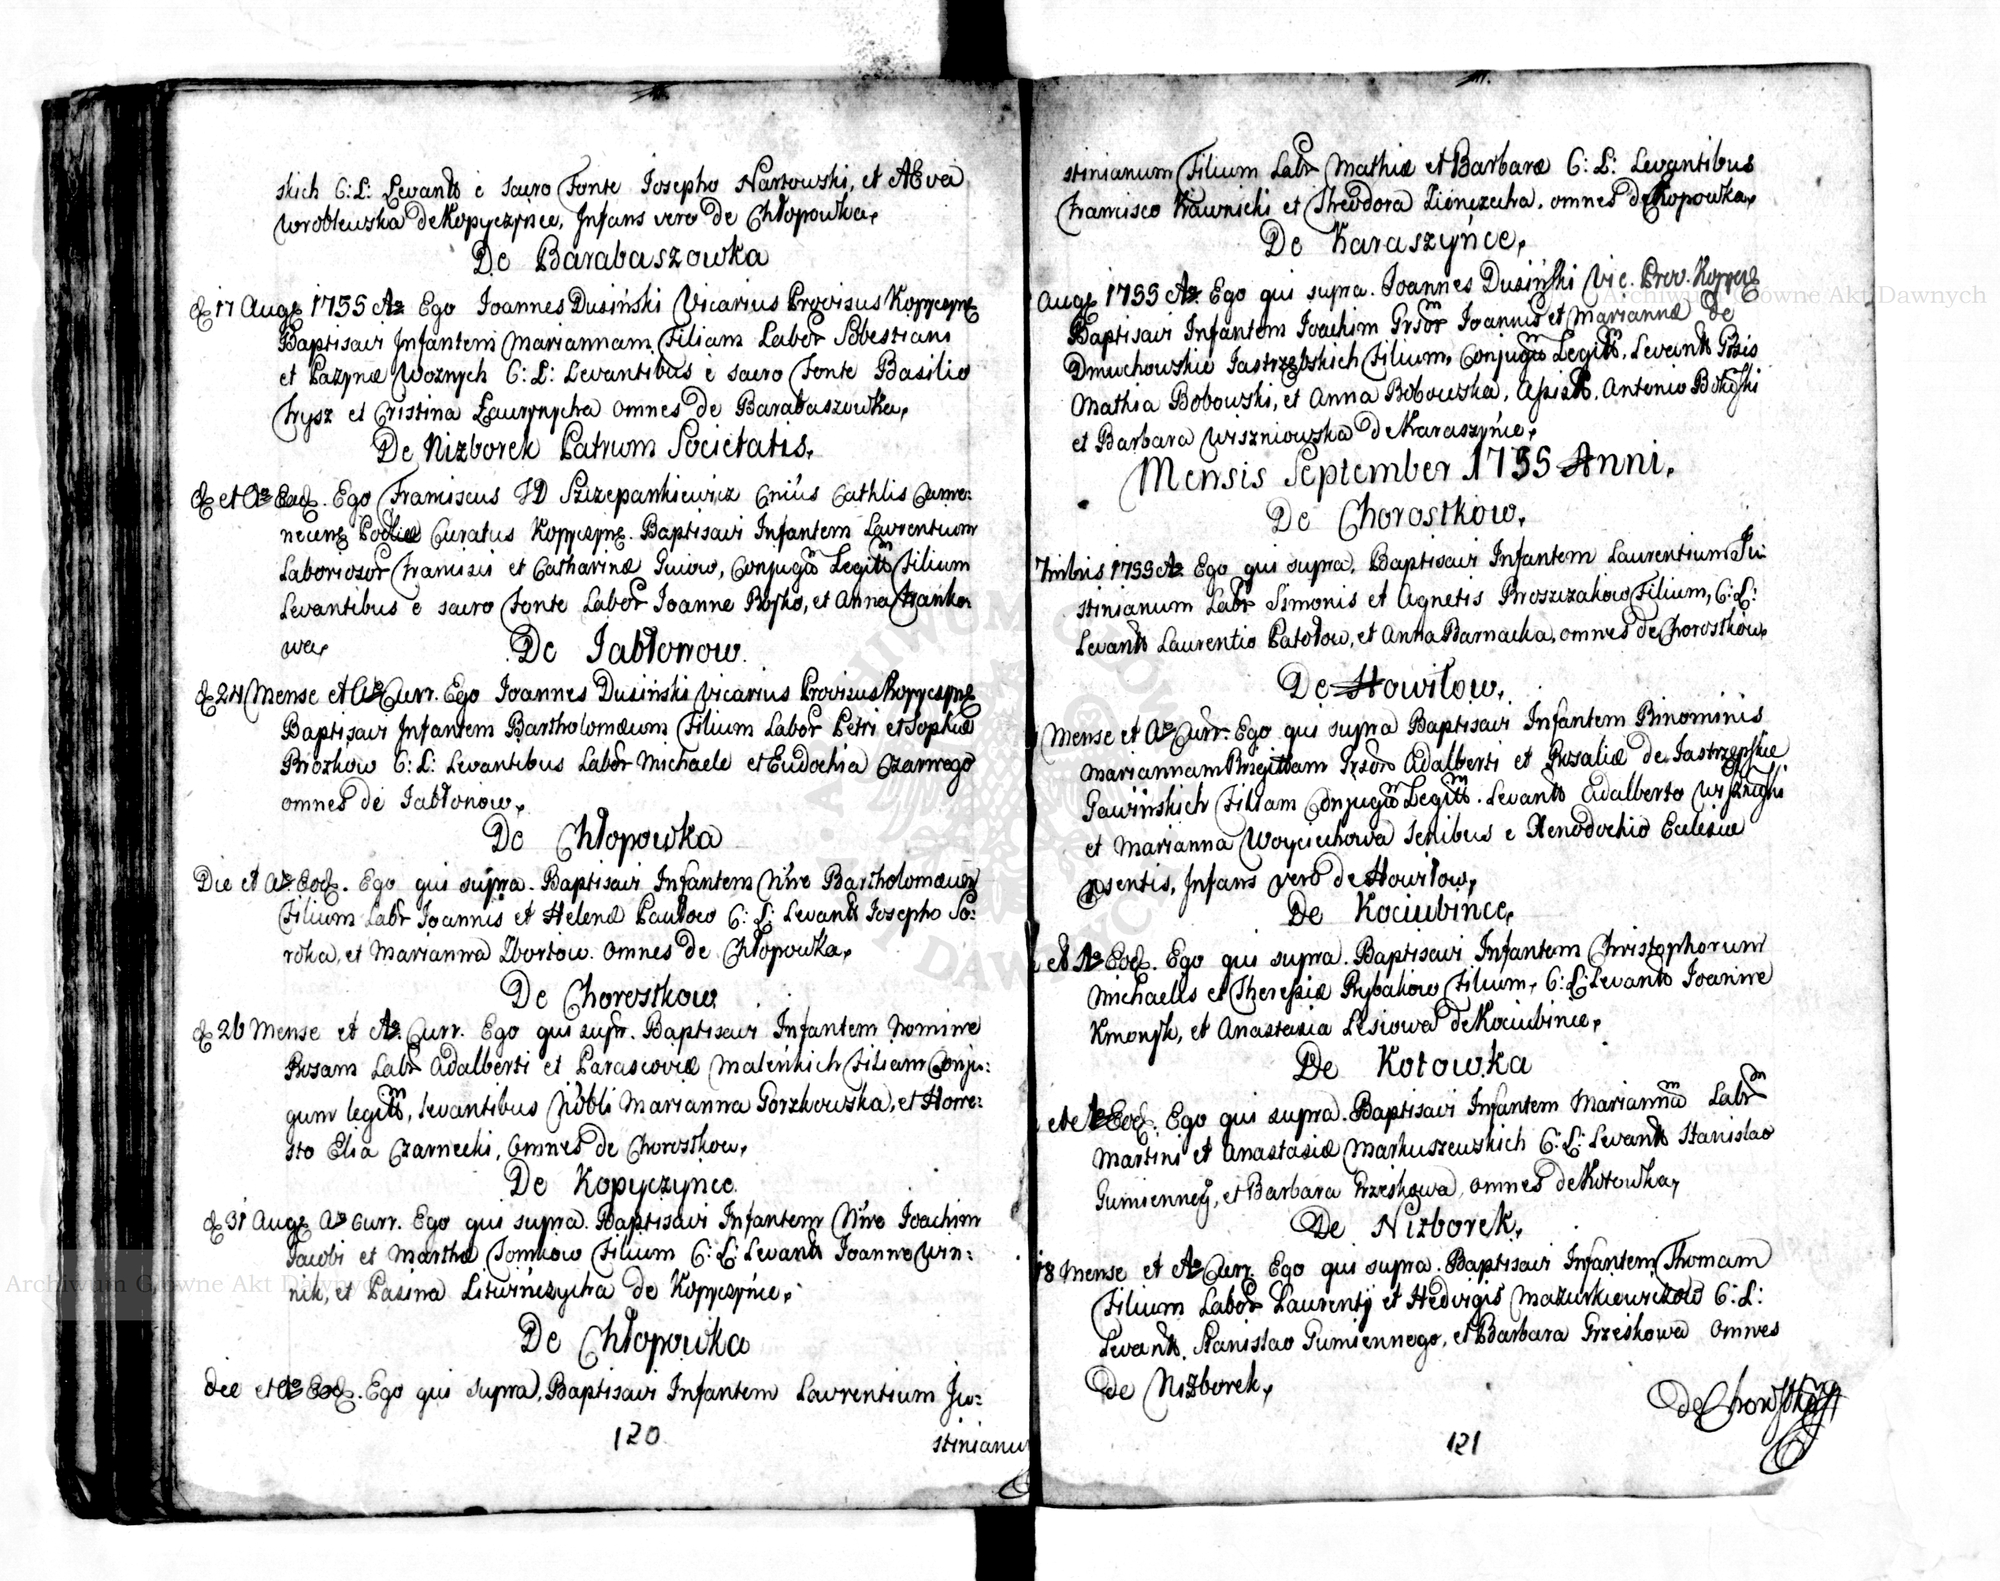 skich C: L: Levantb e sacro Fonte Josepho Nartowski, et Aeva
Wroblewska de Kopyczynce, Infans vero de Chłopowka,
De Barabaszowka
17 Aug 1755 Ao Ego Joannes Dusiński Vicarius Provisus Kopyczyne
Baptisavi Infantem Mariannam Filiam Labor Sobestiani
et Pazynæ Woznych C: L: Levantibus e sacro Fonte Basilio
Frysz et Cristina Laurynycha omnes de Barabaszowka,
De Nizborek Patrum Societatis,
et Ao Eod. Ego Franciscus Szczepankiewicz Cathlis Came:
necens Curatus Kopyczyne. Baptisavi Infantem Lavrentium
Laboriosor Francisci et Catharinæ Guiow, Conjugū Legitt Filium
Levantibus e sacro Fonte Labor Joanne Rosko, et Anna Franko
wa,
De Jabłonow.
24 Mense et Ao Curr. Ego Joannes Dusiński Vicarius Provisus Kopyczyne
Baptisavi Infantem Bartholomæum Filium Labor Petri et Sophiæ
Prozkow C: L: Levantibus Labor Michaele et Eudochia Czarnego
omnes de Jabłonow,
De Chłopowka
Die et Ao Eod. Ego qui supra. Baptisavi Infantem Nine Bartholomæum
Filium Labr Joannis et Helenæ Pawlow C: L: Levantb Josepho So:
roka, et Marianna Zbortow. omnes de Chłopowka,
De Chorostkow
26 Mense et Ao Curr. Ego qui supr. Baptisavi Infantem Nomine
Rosam Labr Adalberti et Parascoviæ Malenkich Filiam Conju:
gum legitt, levantibus Nobli Marianna Gorzkowska, et Hone:
sto Elia Czarnecki, omnes de Chorostkow,
De Kopyczynce.
31 Aug Ao Curr. Ego qui supra. Baptisavi Infantem Nine Joachim
Jacobi et Marthæ Tomkow Filium C: L: Levantb Joanne Win:
nik, et Pasina Litwinczycha de Kopyczynce,
De Chłopowka
die et Ao Eod. Ego qui supra, Baptisavi Infantem Lavrentium Ju:
120
stinianum
stinianum Filium Labr Mathiæ et Barbaræ C: L: Levantibus
Francisco Krawnicki et Theodora omnes de Chłopowka,
De Karaszynce,
Aug 1755 Ao. Ego qui supra. Joannes Dusiński Vic. Prov. Kopycz
Baptisavi Infantem Joachim Grsorm Joannis et Mariannæ de
Dmuchowskie Jastrzębskich Filium, Conjugū Legitt. Levantb Grsis
Mathia Bobowski, et Anna Bobowska, Asistb. Antonio
et Barbara Wiszniowska de Karaszynce,
Mensis September 1755 Anni,
De Chorostkow,
7mbris 1755 Ao Ego qui supra, Baptisavi Infantem Laurentium Ju:
stinianum Labr Simonis et Agnetis Proszczakow Filium, C: L:
Levantb Laurentio Patołow, et Anna Barnacka, omnes de Chorostkow,
De Howiłow,
Mense et Ao Curr. Ego qui supra Baptisavi Infantem Binominis
Mariannam Brigittam Grsor Adalberti et Rosaliæ de Jastrzęskie
Gawinskich Filiam Conjugū Legitt. Levantb Adalberto
et Marianna Woyciechowa senibus e Xenodochio Eclesiæ
psentis, Infans vero de Howiłow,
De Kociubince,
et Ao Eod. Ego qui supra. Baptisavi Infantem Christophorum
Michaelis et Theresiæ Rybakow Filium, C: L: Levantb Joanne
Kmonsk, et Anastasia Lesiowa de Kociubince,
De Kotowka
et Ao Eod. Ego qui supra. Baptisavi Infantem Mariannā Labrm
Martini et Anastasiæ Markuszewskich C: L: Levantb Stanislao
Gumienney, et Barbara Grzeskowa, omnes de Kotowka,
De Nizborek,
18 Mense et Ao Curr. Ego qui supra. Baptisavi Infantem Thomam
Filium Labor Laurenty et Hedvigis Mazurkiewiczow C: L:
Levantb. Stanislao Gumiennego, et Barbara Grzeskowa omnes
de Nizborek,
de Chorostkow
121
Archiwum Główne Akt Dawnych
Archiwum Główne Akt Dawnych